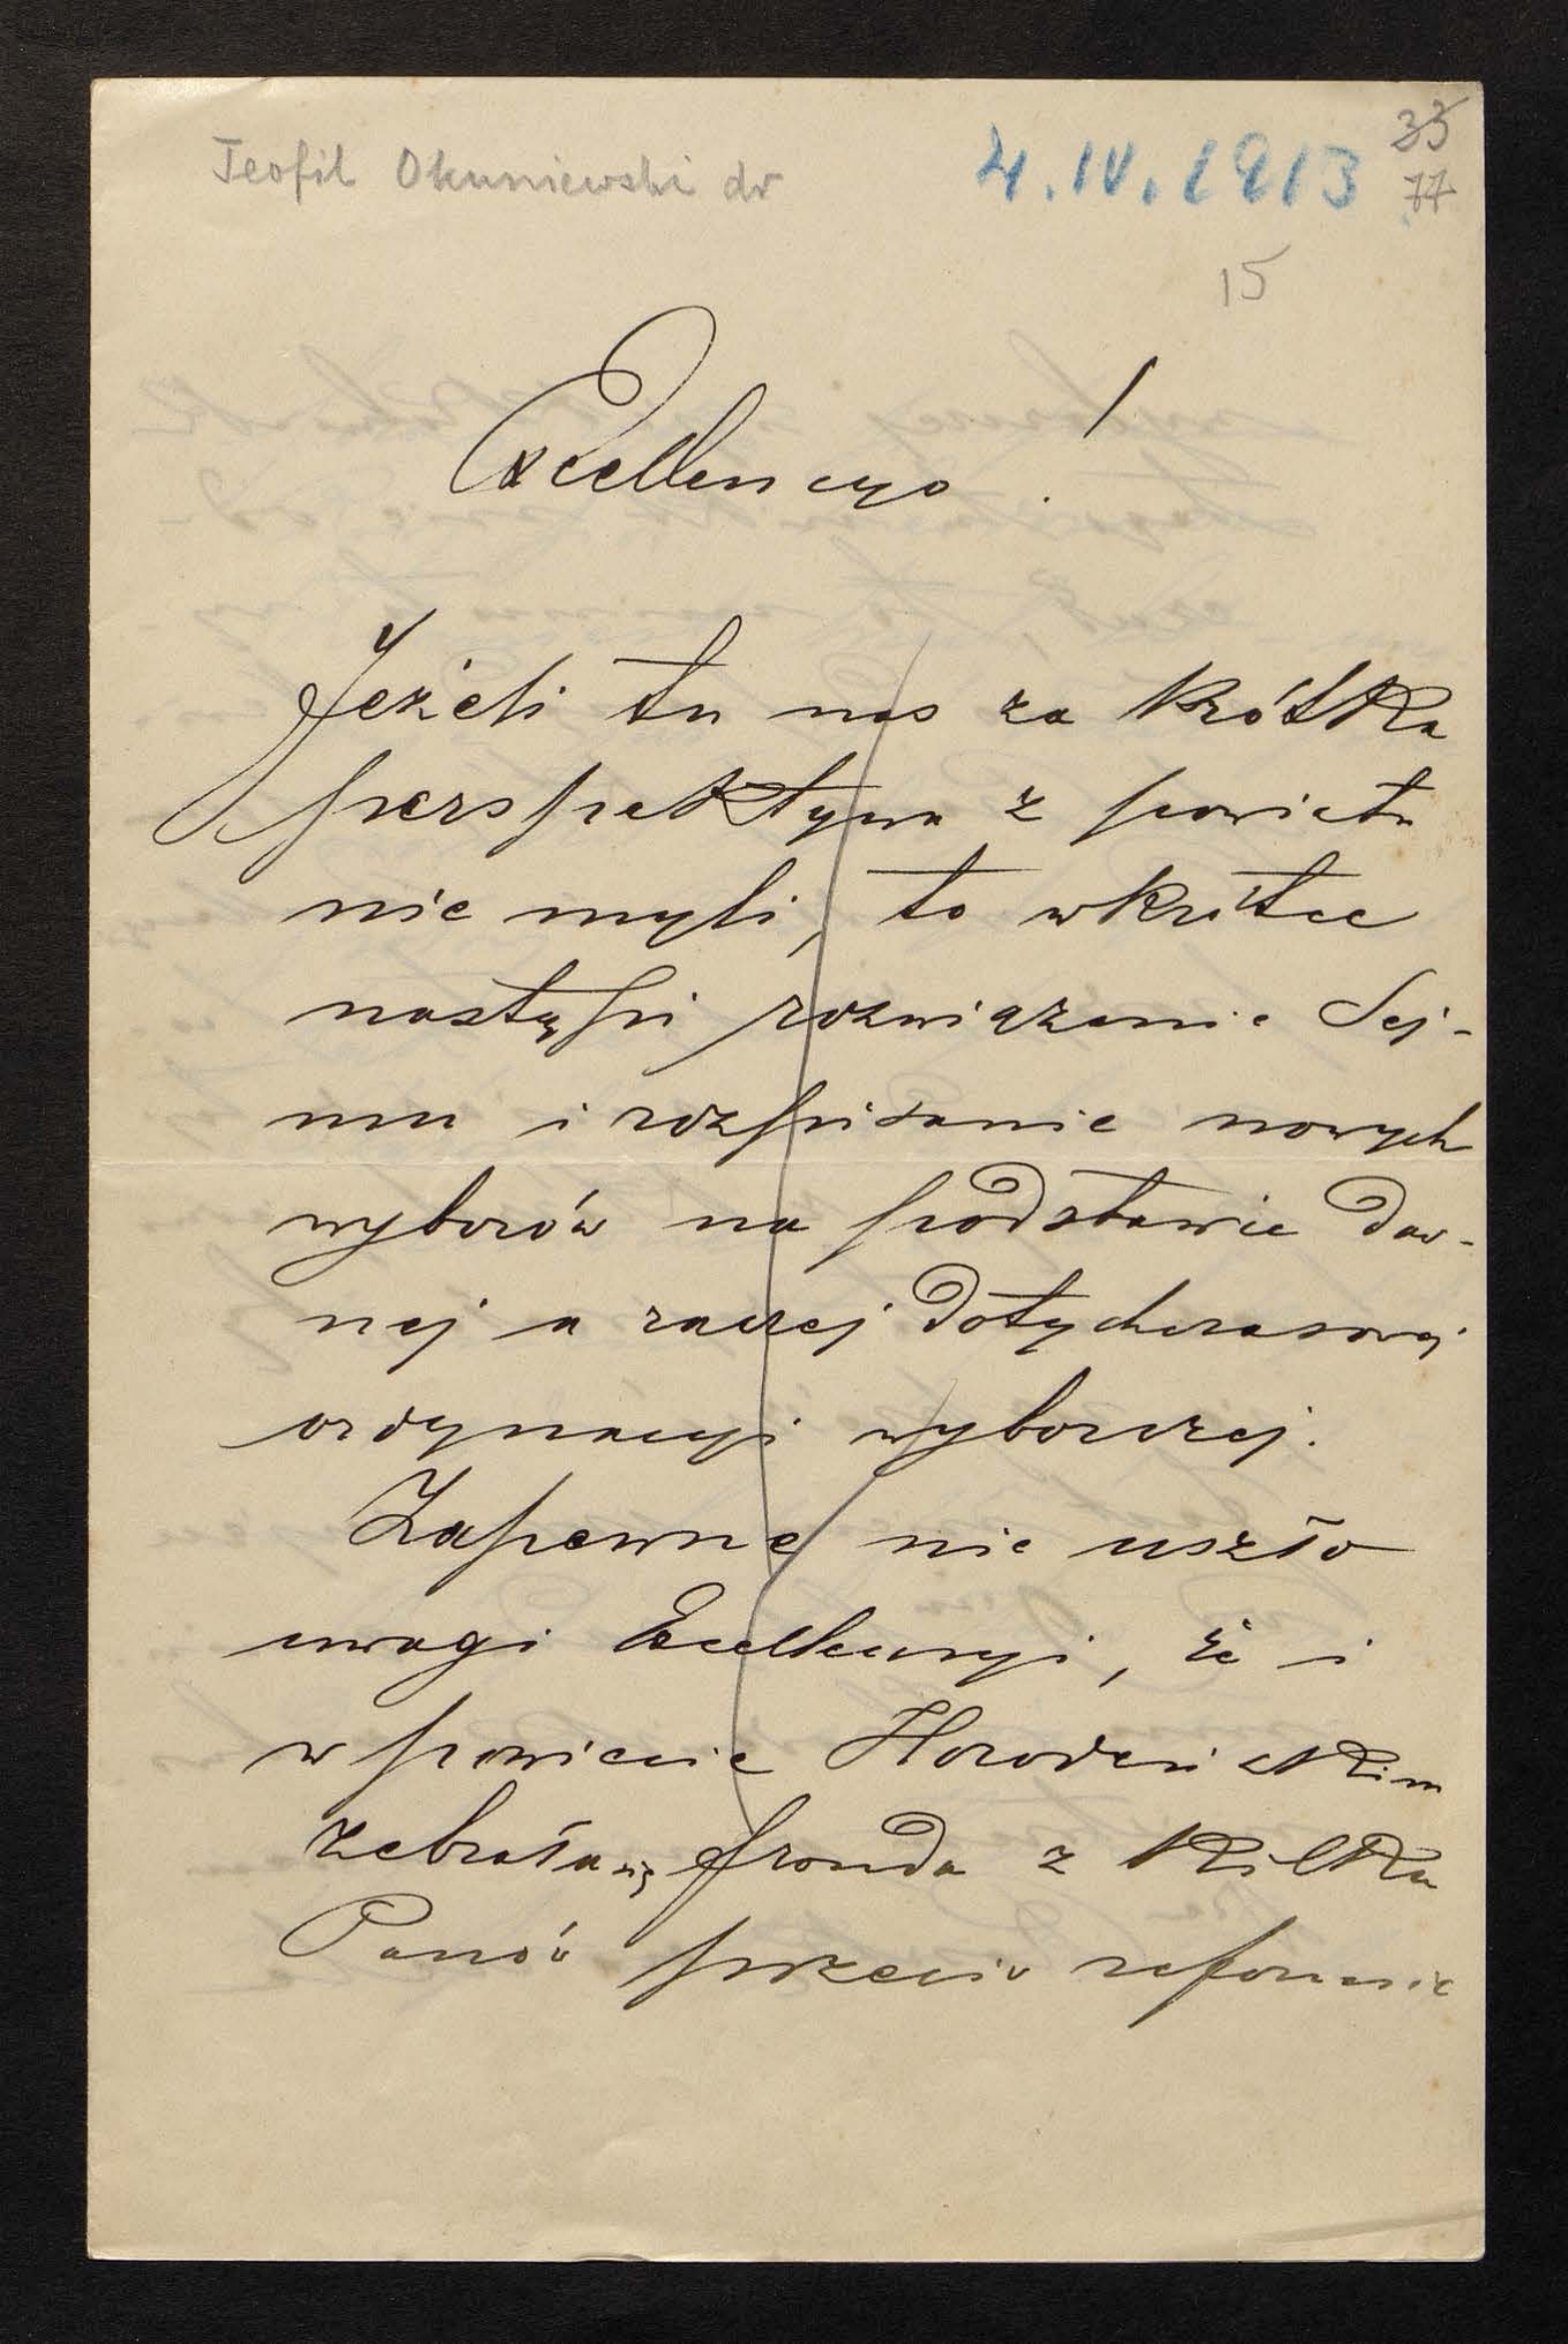 Teofil Okuniewski dr
4.IV.1913
33
77
15
Excellencyo!
Jeżeli tu nas za krótka
perspektywa z powiatu
nie myli, to wkrótce
nastąpi rozwiązanie Sej-
mu i rozpisanie nowych
wyborów na podstawie daw-
nej a raczej dotychczasowej
ordynacyi wyborczej.
Zapewne nie uszło
uwagi Excellencyi, że i
w powiecie Horodeńskim
zebrała się fronda z kilku
Panów przeciw reformie